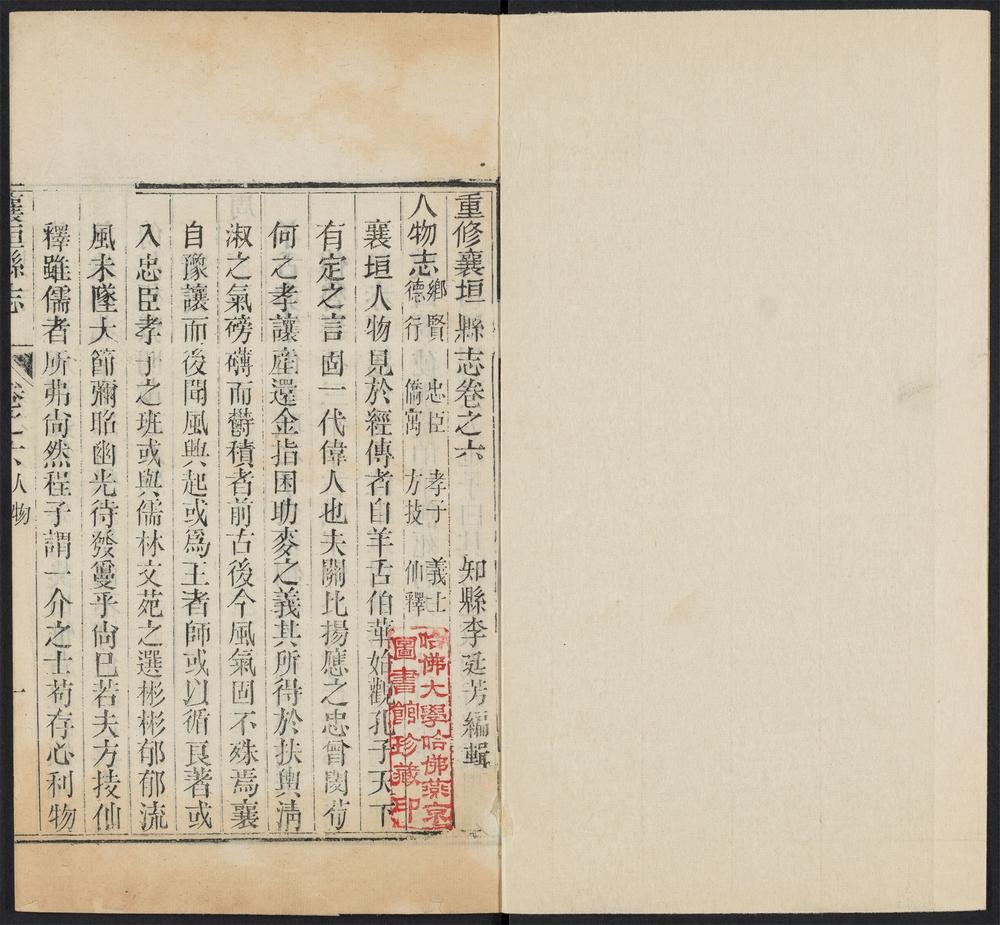 重修襄垣縣志卷之六　知縣李廷芳編輯
人物志 鄉賢 忠臣 孝子 義士
德行 僑寓 方技 仙釋
襄垣人物見於經傳者自羊舌伯華始觀孔子天下
有定之言固一代偉人也夫關比揚應之忠曾閔荀
何之孝讓產還金指囷助麥之義其所得於扶輿清
淑之氣磅礴而鬱積者前古後今風氣固不殊焉襄
自豫讓而後聞風興起或爲王者師或以循良著或
入忠臣孝子之班或與儒林文苑之選彬彬郁郁流
風未墜大節彌昭幽光待發亹乎尙已若夫方技仙
釋雖儒者所弗尙然程子謂一介之士苟存心利物
襄垣縣志 卷之六 人物 一
哈佛大學哈佛燕京
圖書館珍藏印